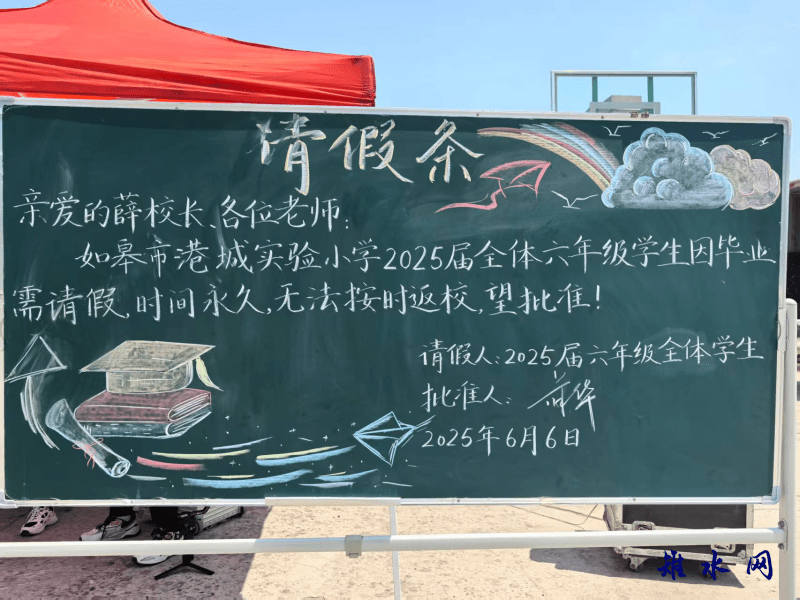 请假条
亲爱的薛校长、各位老师:
如皋市港城实验小学2025届全体六年级学生因毕业
需请假,时间永久,无法按时返校,望批准!
请假人:2025届六年级全体学生
批准人:
2025年6月6日
雉水网